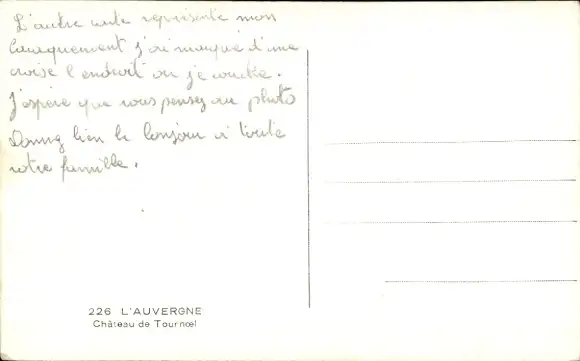 L'autre carte représente mon
Baraquement j'ai marqué d'une
croise l'endroit ou je couche.
J'espère que vous pensez au photo
Donnez bien le bonjour a toute
votre famille.
226 L'AUVERGNE
Château de Tournoël